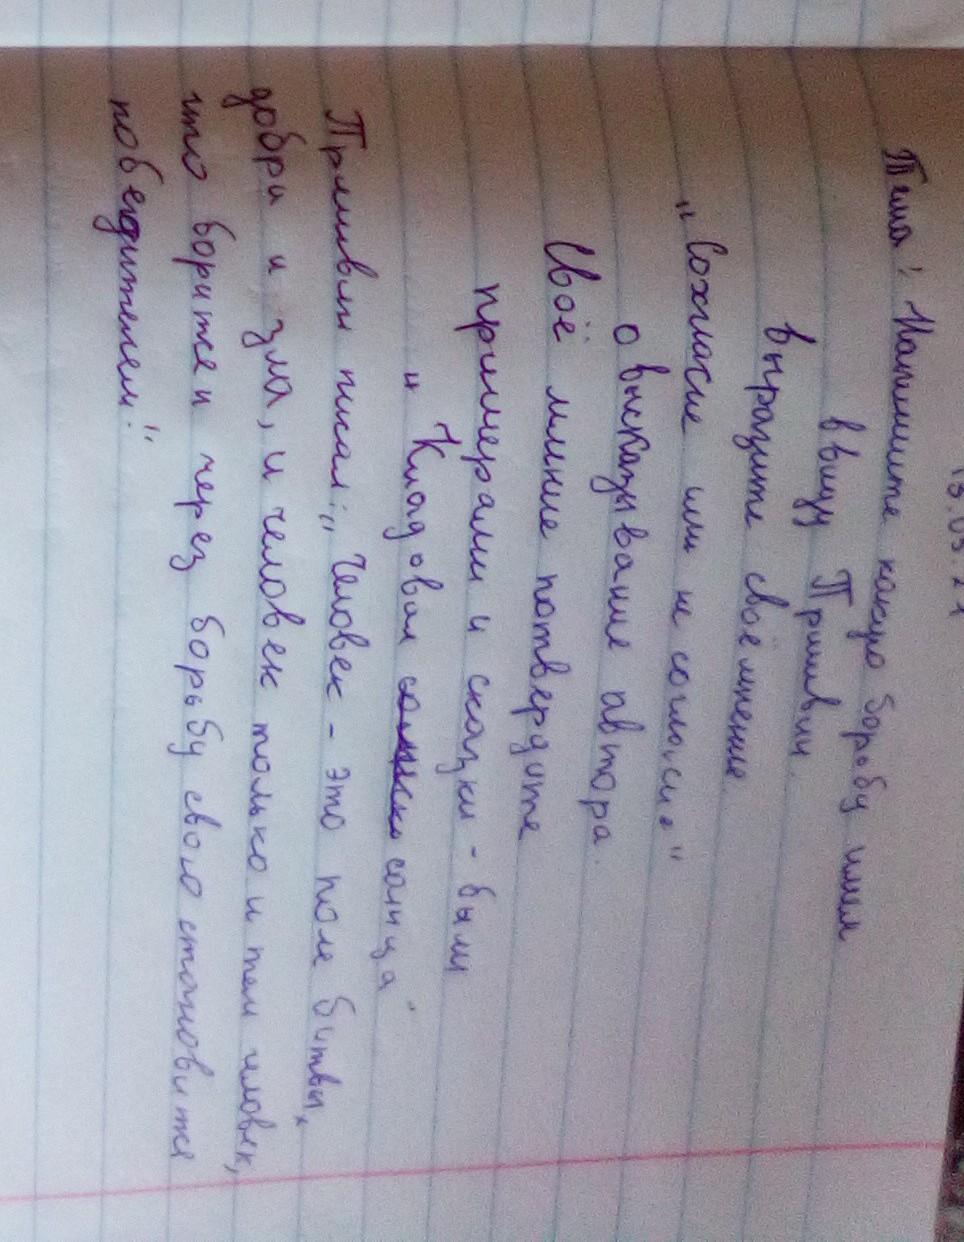 Тема: Напишите какую борьбу имел
ввиду Пришвин.
выразите своё мнение
"Сохгласие или не согласие"
о высказывание автора.
Своё мнние потвердите
примерами и сказки - были
"Кладовая солнца"
Пришвин писал: "Человек - это поле битвы,
добра и зла, и человек только и тем человек,
что борится и через борьбу свою становится
победителем!"